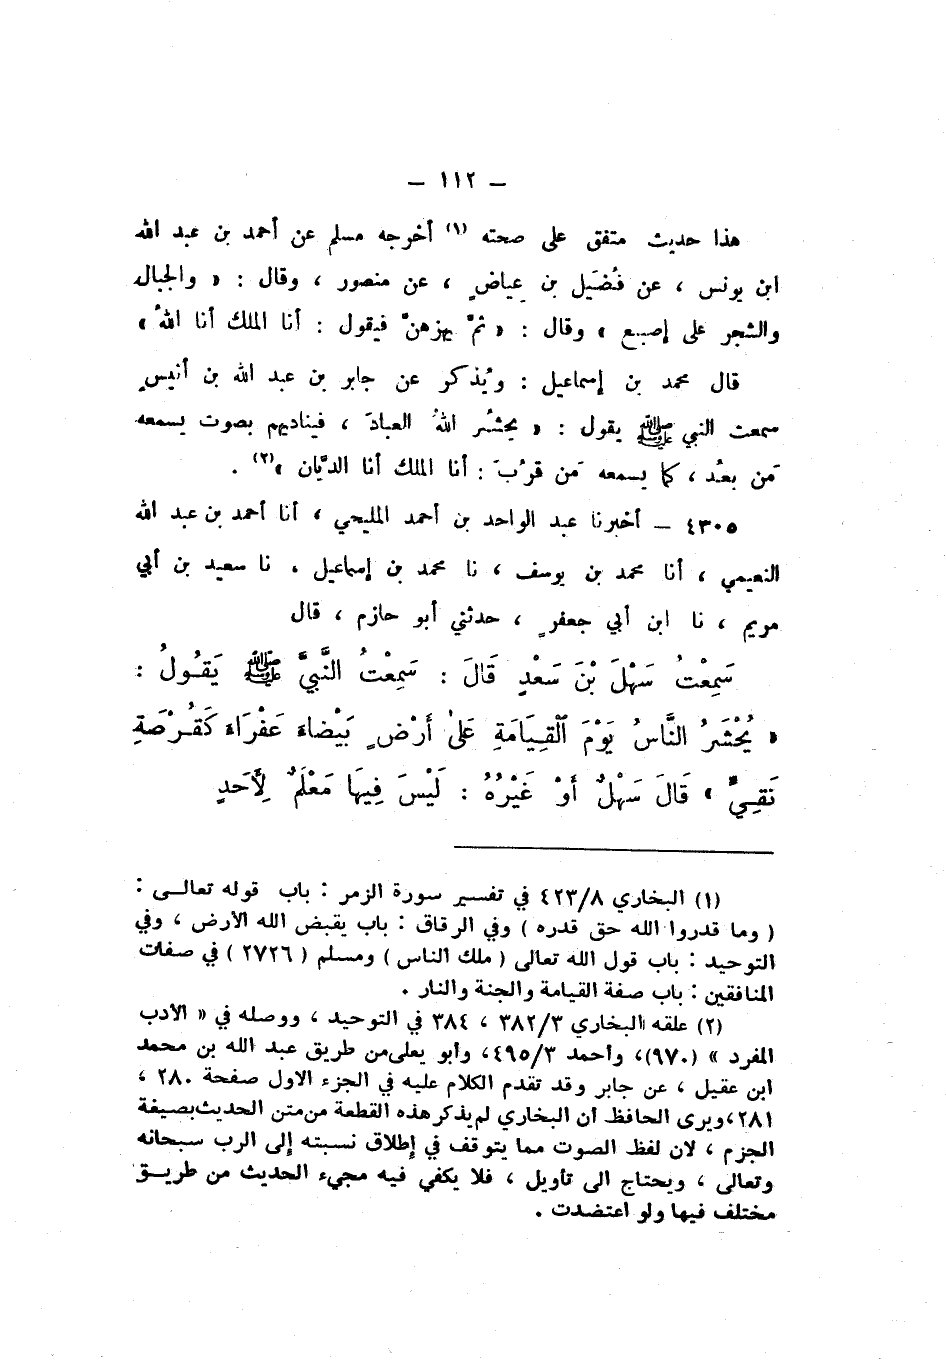 – ١١٢ –
هذا حديث متفق على صحته (١) أخرجه مسلم عن أحمد بن عبد الله
ابن يونس ، عن فُضَيل بن عياضٍ ، عن منصور ، وقال : « والجبال
والشجر على إصبع » وقال : « ثمّ يهزهنّ فيقول : أنا الملك أنا اللهُ »
قال محمد بن إسماعيل : ويُذكر عن جابر بن عبد الله بن أنيسٍ
سمعت النبي ﷺ يقول : « يحشُر اللهُ العبادَ ، فيناديهم بصوت يسمعه
مَن بعُد ، كما يسمعه مَن قرُبَ : أنا الملك أنا الديَّان »(٢) .
٤٣٠٥ – أخبرنا عبد الواحد بن أحمد المليحي ، أنا أحمد بن عبد الله
النعيمي ، أنا محمد بن يوسف ، نا محمد بن إسماعيل . نا سعيد بن أبي
مريم ، نا ابن أبي جعفرٍ ، حدثني أبو حازم ، قال
سَمِعْتُ سَهْلَ بْنَ سَعْدٍ قَالَ : سَمِعْتُ النَّبيَّ ﷺ يَقُولُ :
« يُحْشَرُ النَّاسُ يَوْمَ ٱلْقِيَامَةِ عَلىٰ أَرْضٍ بَيْضاءَ عَفْرَاءَ كَقُرْصَةِ
نَقِيٍّ » قَالَ سَهْلٌ أَوْ غَيْرُهُ : لَيْسَ فِيهَا مَعْلَمٌ لِأَحَدٍ
(١) البخاري ٤٢٣/٨ في تفسير سورة الزمر : باب قوله تعالى :
( وما قدروا الله حق قدره ) وفي الرقاق : باب يقبض الله الأرض ، وفي
التوحيد : باب قول الله تعالى ( ملك الناس ) ومسلم ( ٢٧٢٦ ) في صفات
المنافقين : باب صفة القيامة والجنة والنار .
(٢) علقه البخاري ٣٨٢/٣ ، ٣٨٤ في التوحيد ، ووصله في « الأدب
المفرد » (٩٧٠)، وأحمد ٤٩٥/٣، وأبو يعلى من طريق عبد الله بن محمد
ابن عقيل ، عن جابر وقد تقدم الكلام عليه في الجزء الاول صفحة ٢٨٠ ،
٢٨١،ويرى الحافظ أن البخاري لم يذكر هذه القطعة من متن الحديث بصيغة
الجزم ، لان لفظ الصوت مما يتوقف في إطلاق نسبته إلى الرب سبحانه
وتعالى ، ويحتاج الى تأويل ، فلا يكفي فيه مجيء الحديث من طريق
مختلف فيها ولو اعتضدت .